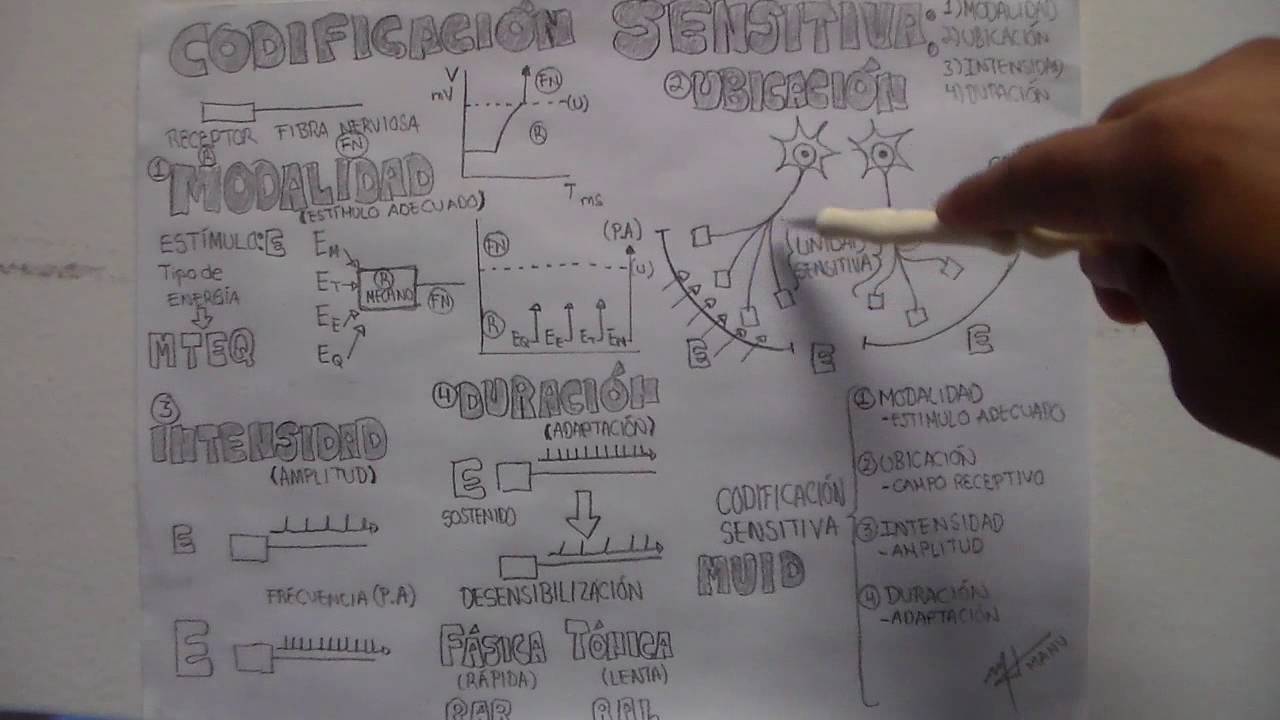 CODIFICACIÓN SENSITIVA:
1) MODALIDAD
2) UBICACIÓN
3) INTENSIDAD
4) DURACIÓN
RECEPTOR FIBRA NERVIOSA
R
FN
V
mV
FN
(U)
R
T ms
① MODALIDAD
(ESTÍMULO ADECUADO)
ESTÍMULO: E
Tipo de
ENERGÍA
MTEQ
EM
ET
EE
EQ
R
MECANO
FN
FN
(P.A)
(U)
R
EQ EE ET EM
② UBICACIÓN
UNIDAD
SENSITIVA
E
E
E
③ INTENSIDAD
(AMPLITUD)
E
FRECUENCIA (P.A)
E
④ DURACIÓN
(ADAPTACIÓN)
E
SOSTENIDO
DESENSIBILIZACIÓN
FÁSICA TÓNICA
(RÁPIDA) (LENTA)
RAR RAL
CODIFICACIÓN
SENSITIVA
MUID
① MODALIDAD
-ESTIMULO ADECUADO
② UBICACIÓN
-CAMPO RECEPTIVO
③ INTENSIDAD
-AMPLITUD
④ DURACIÓN
-ADAPTACIÓN
MANU